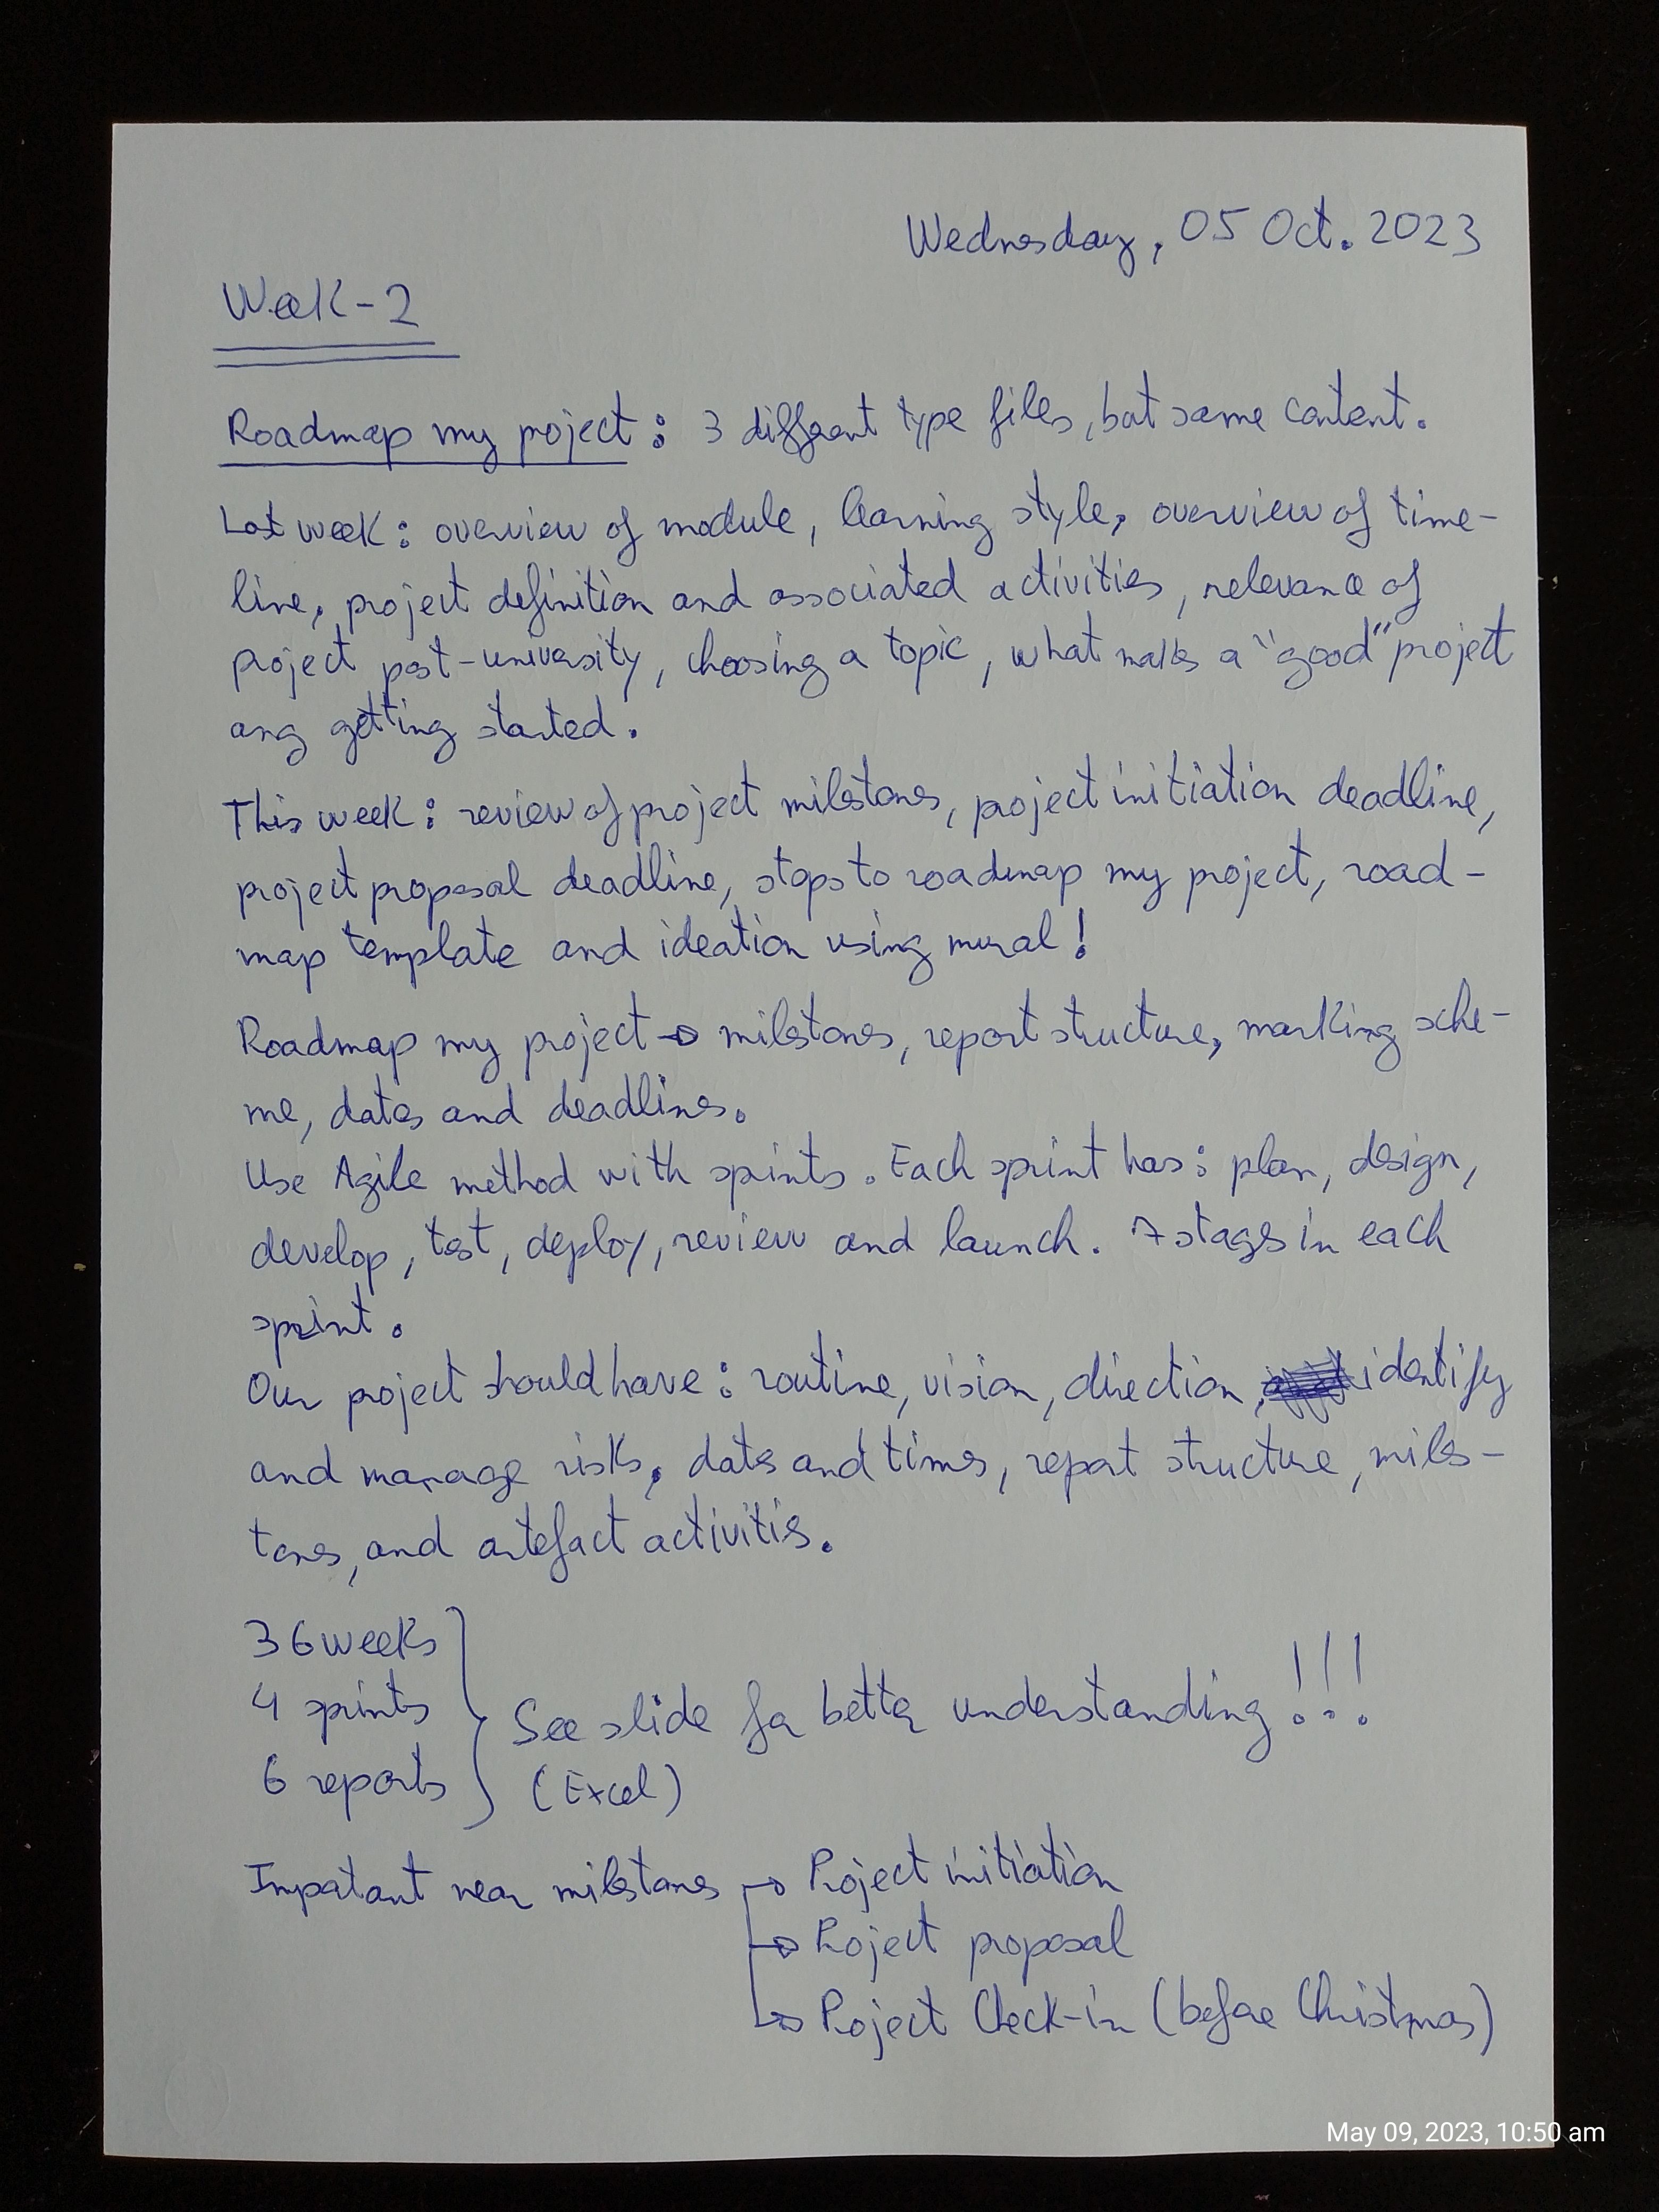 Wednesday, 05 Oct. 2023
Week-2
Roadmap my project: 3 different type files, but same content.
Last week: overview of module, learning style, overview of time-
line, project definition and associated activities, relevance of
project post-university, choosing a topic, what makes a "good" project
ang getting started.
This week: review of project milestones, project initiation deadline,
project proposal deadline, steps to roadmap my project, road-
map template and ideation using mural!
Roadmap my project → milestones, report structure, marking sche-
me, dates and deadlines.
Use Agile method with sprints. Each sprint has: plan, design,
develop, test, deploy, review and launch. 7 stages in each
sprint.
Our project should have: routine, vision, direction, identify
and manage risks, dates and times, report structure, miles-
tones, and artefact activities.
36 weeks
4 sprints
6 reports
See slide for better understanding!!!
(Excel)
Important near milestones → Project initiation
→ Project proposal
→ Project Check-in (before Christmas)
May 09, 2023, 10:50 am